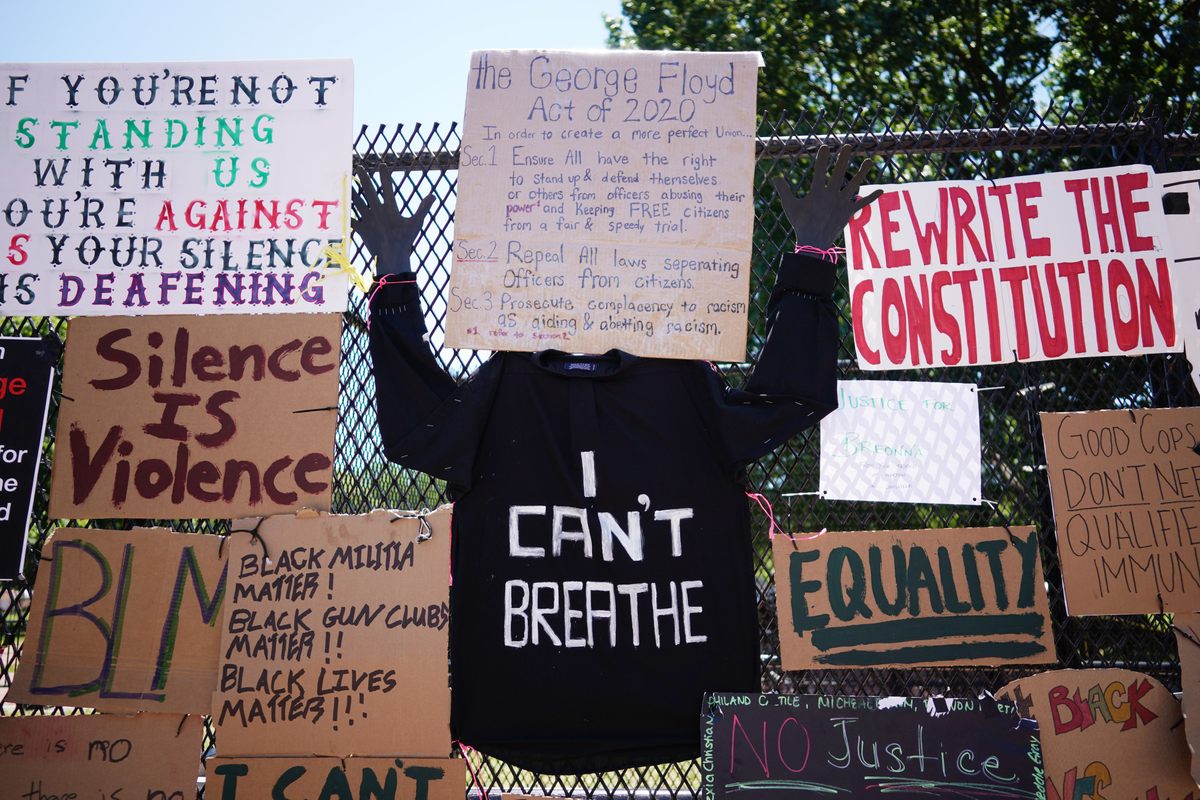 F YOU'RE NOT
STANDING
WITH US
OU'RE AGAINST
S YOUR SILENCE
IS DEAFENING
the George Floyd
Act of 2020
In order to create a more perfect Union...
Sec.1 Ensure All have the right
to stand up & defend themselves
or others from officers abusing their
power and keeping FREE citizens
from a fair & speedy trial.
Sec.2 Repeal All laws seperating
Officers from citizens.
Sec.3 Prosecute complacency to racism
as aiding & abetting racism.
*1 refer to section 2
REWRITE THE
CONSTITUTION
Silence
IS
Violence
for
I
CAN'T
BREATHE
JUSTICE FOR
BREONNA
GOOD COPS
DON'T NEE
QUALIFIE
IMMUN
BLM
BLACK MILITIA
MATTER!
BLACK GUN CLUBS
MATTER!!
BLACK LIVES
MATTER!!!
EQUALITY
NO Justice
BLACK
ere is no
there is no
I CAN'T